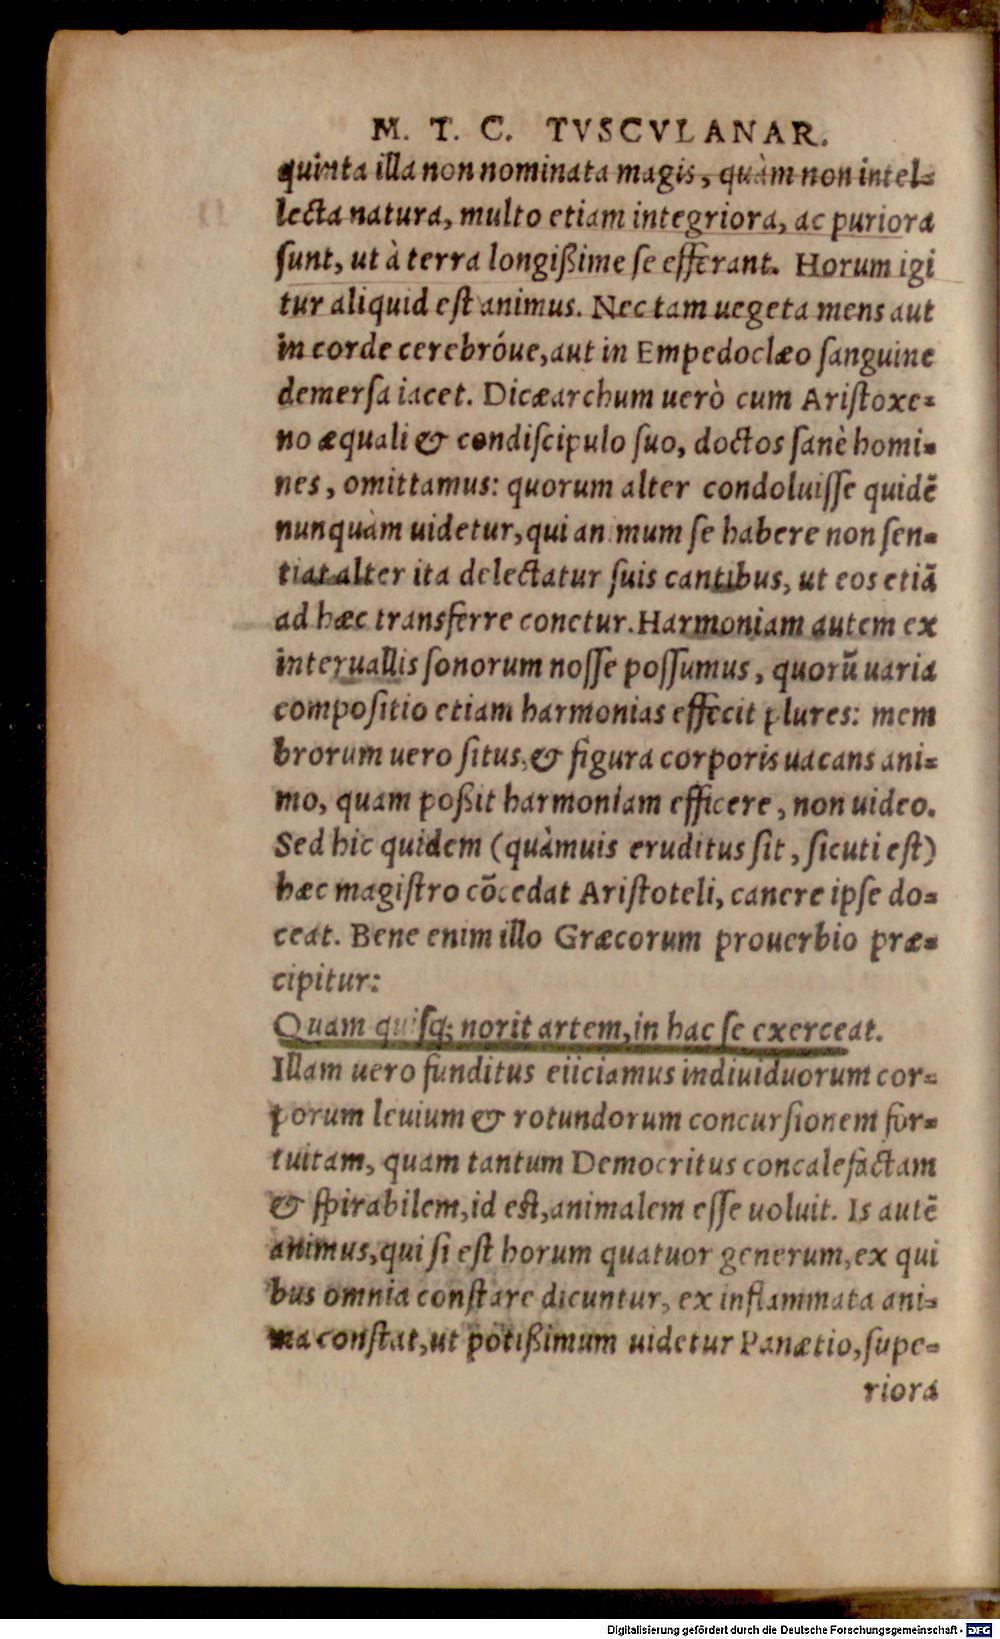 M. T. C. TVSCVLANAR.
quinta illa non nominata magis, quàm non intel-
lecta natura, multo etiam integriora, ac puriora
sunt, ut à terra longißime se efferant. Horum igi
tur aliquid est animus. Nec tam uegeta mens aut
in corde cerebróue, aut in Empedoclæo sanguine
demersa iacet. Dicæarchum uerò cum Aristoxe-
no æquali & condiscipulo suo, doctos sanè homi-
nes, omittamus: quorum alter condoluisse quidẽ
nunquàm uidetur, qui an mum se habere non sen-
tiat alter ita delectatur suis cantibus, ut eos etiã
ad hæc transferre conetur. Harmoniam autem ex
interuallis sonorum nosse possumus, quorũ uaria
compositio etiam harmonias effecit plures: mem
brorum uero situs, & figura corporis uacans ani-
mo, quam poßit harmoniam efficere, non uideo.
Sed hic quidem (quàmuis eruditus sit, sicuti est)
hæc magistro cõcedat Aristoteli, canere ipse do-
ceat. Bene enim illo Græcorum prouerbio præ-
cipitur:
Quam quisq; norit artem, in hac se exerceat.
Illam uero funditus eiiciamus indiuiduorum cor-
porum leuium & rotundorum concursionem for-
tuitam, quam tantum Democritus concalefactam
& spirabilem, id est, animalem esse uoluit. Is autẽ
animus, qui si est horum quatuor generum, ex qui
bus omnia constare dicuntur, ex inflammata ani-
ma constat, ut potißimum uidetur Panætio, supe-
riora
Digitalisierung gefördert durch die Deutsche Forschungsgemeinschaft - DFG